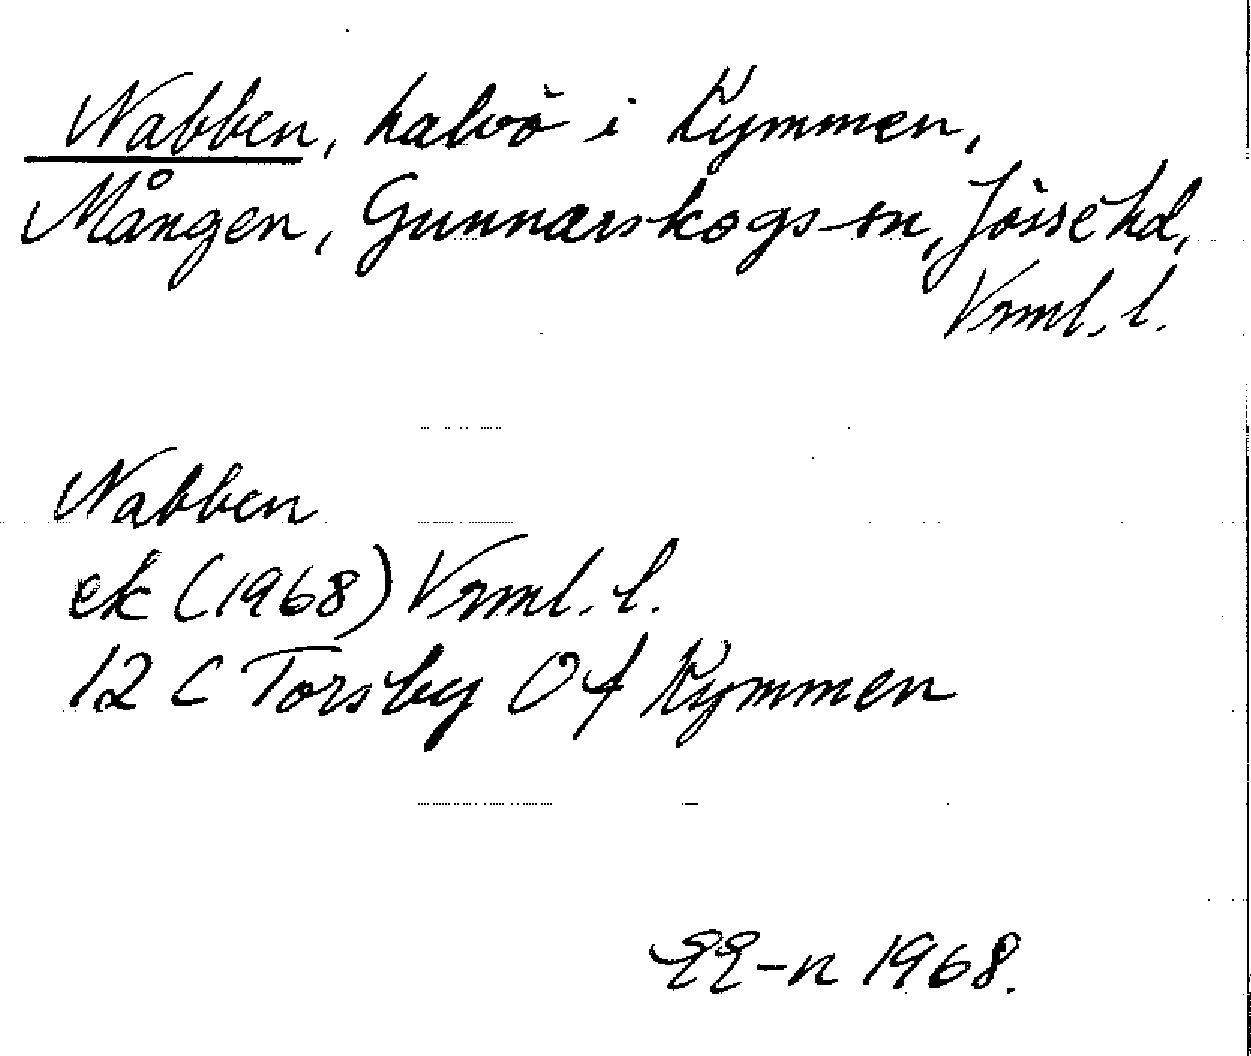 Nabben, halvö i Kymmen,
Mången, Gunnarskogs sn, Jösse hd,
Vrml. l.
Nabben
ek (1968) Vrml. l.
12 C Torsby 0 f Kymmen
EE-n 1968.